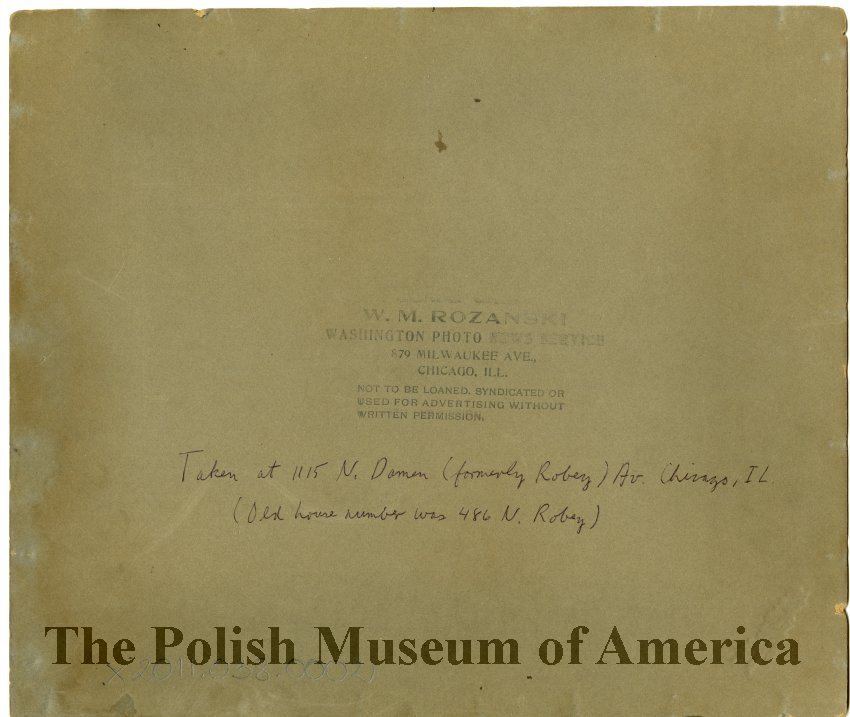 W. M. ROZANSKI
WASHINGTON PHOTO NEWS SERVICE
879 MILWAUKEE AVE.,
CHICAGO, ILL.
NOT TO BE LOANED, SYNDICATED OR
USED FOR ADVERTISING WITHOUT
WRITTEN PERMISSION.
Taken at 1115 N. Damen (formerly Robey) Av. Chicago, IL
(Old house number was 486 N. Robey)
The Polish Museum of America